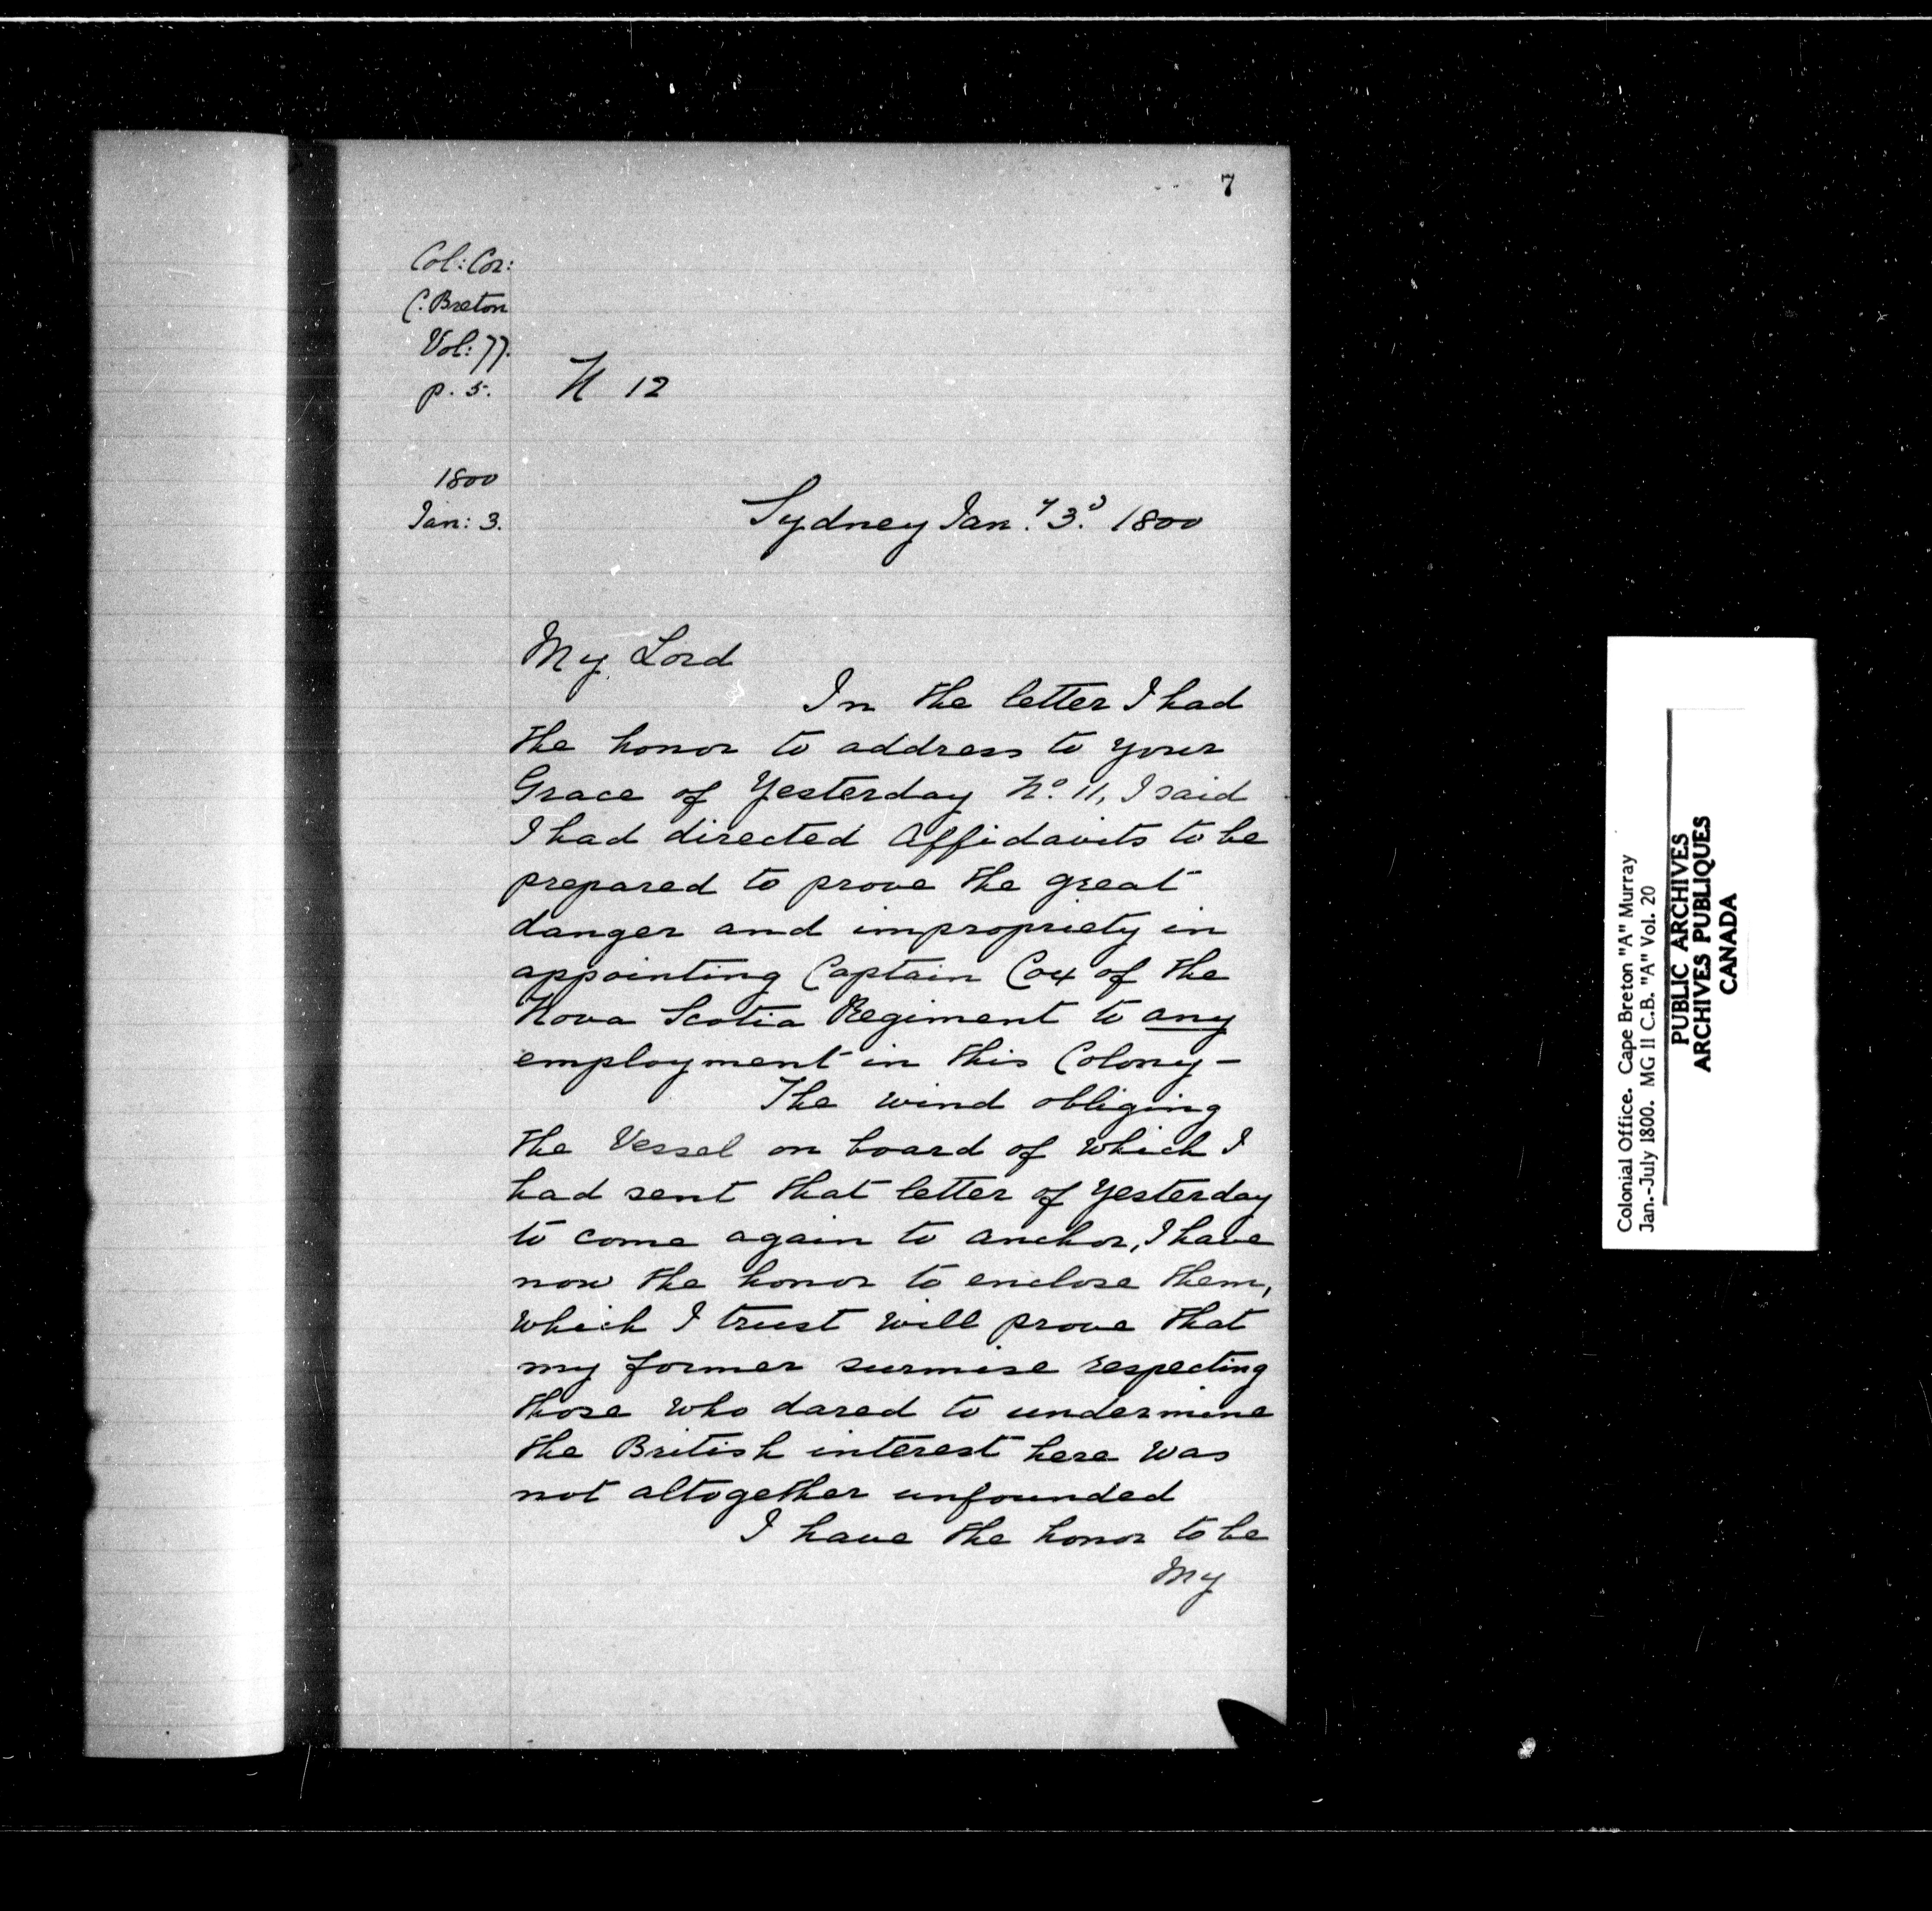 7
Col: Cor:
C. Breton
Vol: 77.
p. 5.
N 12
1800
Jan: 3.
Sydney Jan.y 3.d 1800
My Lord
In the letter I had
the honor to address to your
Grace of Yesterday No. 11, I said
I had directed Affidavits to be
prepared to prove the great
danger and impropriety in
appointing Captain Cox of the
Nova Scotia Regiment to any
employment in this Colony -
The wind obliging
the Vessel on board of which I
had sent that letter of Yesterday
to come again to anchor, I have
now the honor to enclose them,
which I trust will prove that
my former surmise respecting
those who dared to undermine
the British interest here was
not altogether unfounded
I have the honor to be
My
Colonial Office. Cape Breton "A" Murray
Jan.-July 1800. MG 11 C.B. "A" Vol. 20
PUBLIC ARCHIVES
ARCHIVES PUBLIQUES
CANADA